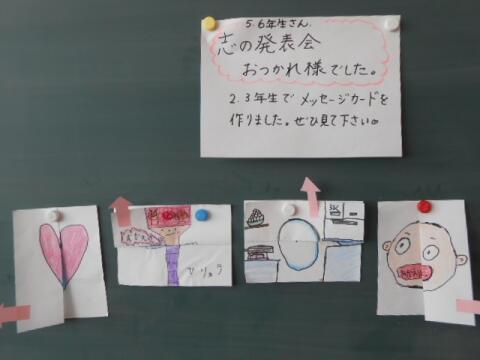 5.6年生さん.
志の発表会
おつかれ様でした。
2.3年生でメッセージカードを
作りました。ぜひ見て下さい。